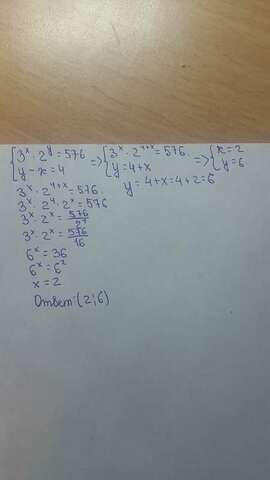 {3ˣ · 2ʸ = 576 => {3ˣ · 2⁴⁺ˣ = 576 => {x = 2
{y - x = 4 {y = 4 + x {y = 6
3ˣ · 2⁴⁺ˣ = 576. y = 4 + x = 4 + 2 = 6
3ˣ · 2⁴ · 2ˣ = 576
3ˣ · 2ˣ = 576/2⁴
3ˣ · 2ˣ = 576/16
6ˣ = 36
6ˣ = 6²
x = 2
Ответ: (2; 6)